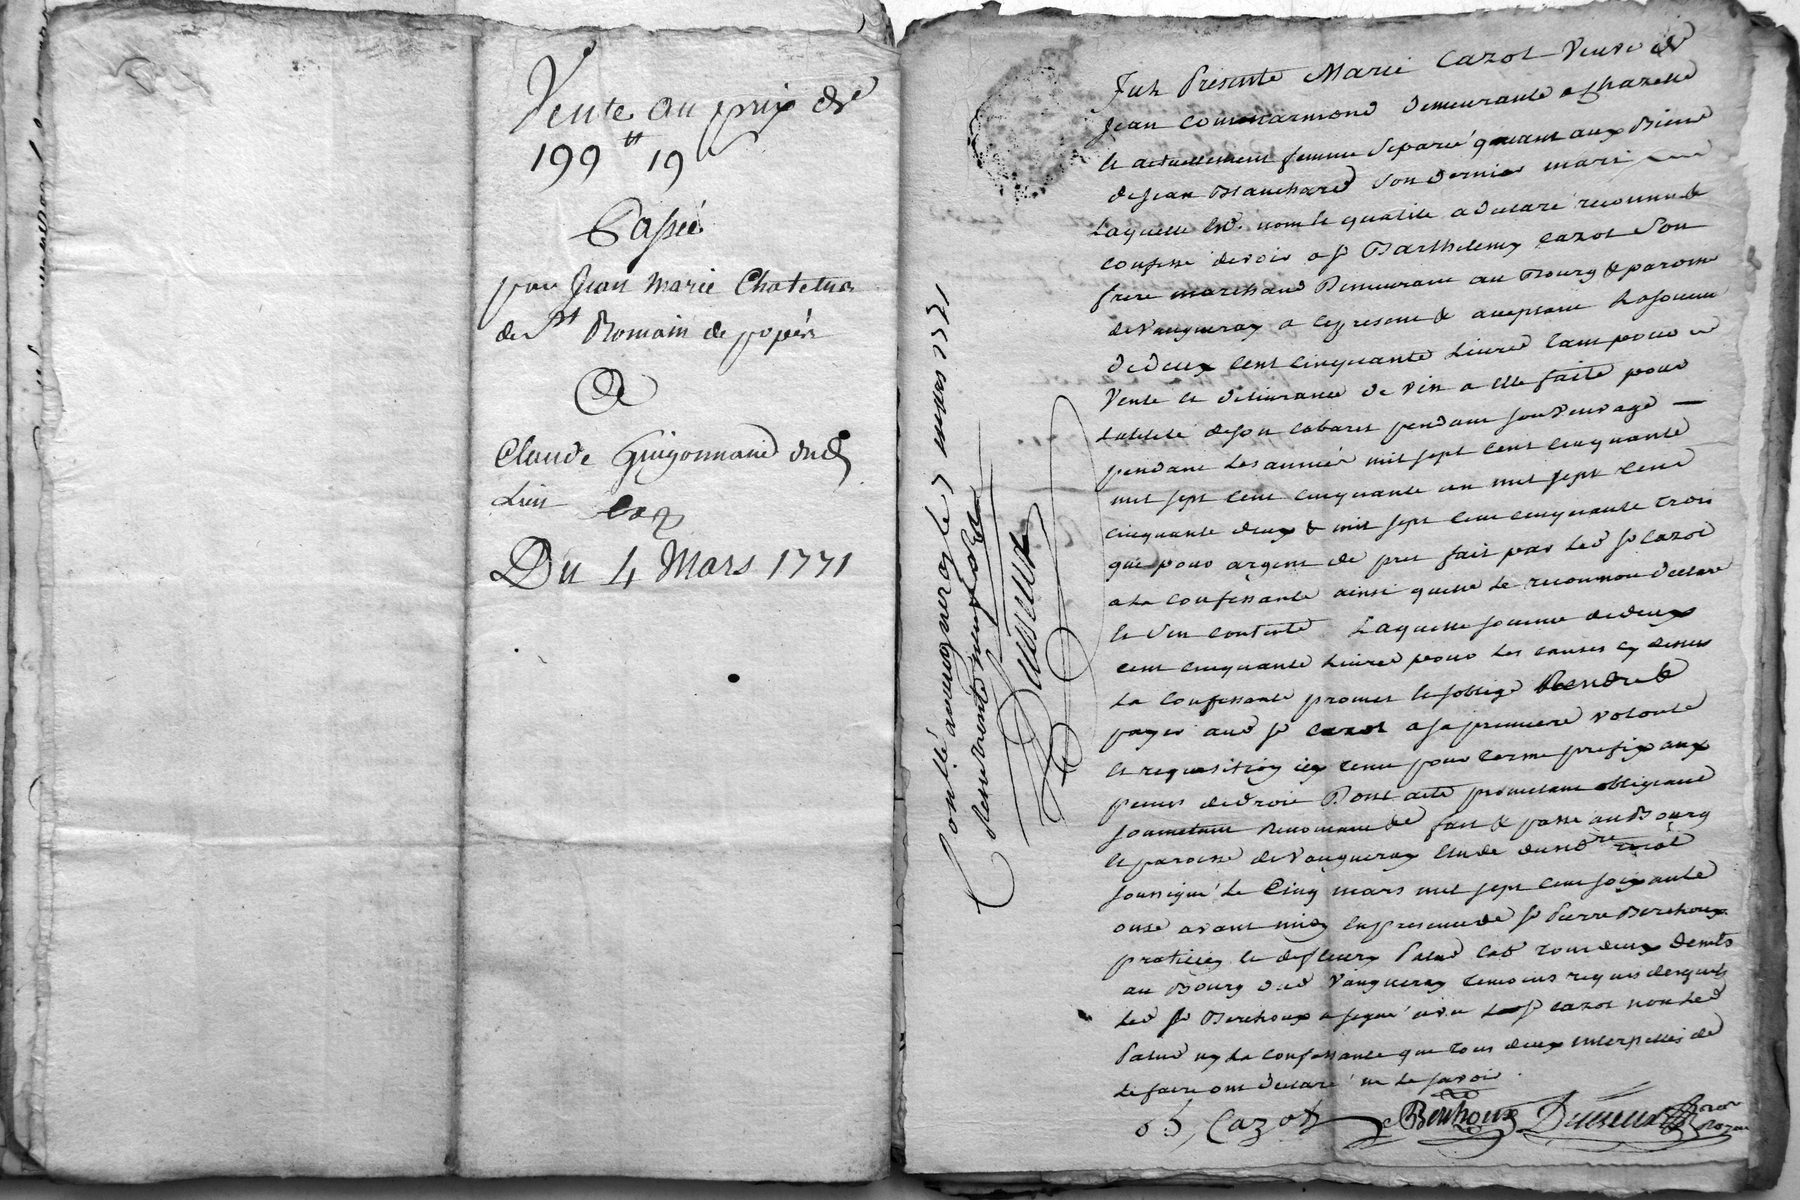 Vente au prix de
199 tt 19 s
Passée
par Jean Marie Chatelus
de St Romain de popés
A
Claude Guigonnand dud
Lieu
Du 4 Mars 1771
Controllé a vaugneray le 7 mars 1771
Reçu trente neuf sols
Dusseurt
Fut Presente Marie Cazot Veuve de
Jean Commarmond demeurante a Chazelle
et actuellement femme separée quant aux Biens
de Jean Blanchard son dernier mari
Laquelle en nom et qualité a declaré reconnu &
confessé devoir a sr Barthelemy Cazot Son
frere marchand Demeurant au Bourg & paroisse
de Vaugneray a ce present & acceptant La somme
de deux Cent Cinquante Livres tant pour
Vente et delivrance de vin a elle faite pour
Lutilité de son Cabaret pendant son veuvage
pendant Les années mil sept Cent Cinquante
mil sept Cent Cinquante un mil sept Cent
Cinquante deux & mil sept Cent Cinquante trois
que pour argent de pret fait par Led sr Cazot
a La Confessante ainsi quelle Le reconnoit declare
et sen contente Laquelle somme de deux
cent cinquante Livres pour Les causes cy dessus
La Confessante promet et soblige Rendre &
payer aud sr Cazot a sa premiere volonté
et requisition icy tenue pour terme prefix aux
peines de droit Dont acte promettant obligeant
soumettant Renonceant &c fait & passé au Bourg
et paroisse de Vaugneray Etude dud nre royal
soussigné Le Cinq mars mil sept Cent soixante
onze avant midy En presence de sr Pierre Berthoux
praticien et de fleury Palud Lab tous deux demts
au Bourg dud Vaugneray temoins requis desquels
Led sr Berthoux a signé avec Led sr Cazot non Led
Palud ny La confessante que tous deux interpellés de
Le faire ont declaré ne Le savoir
B, Cazot Berthoux Dusseurt